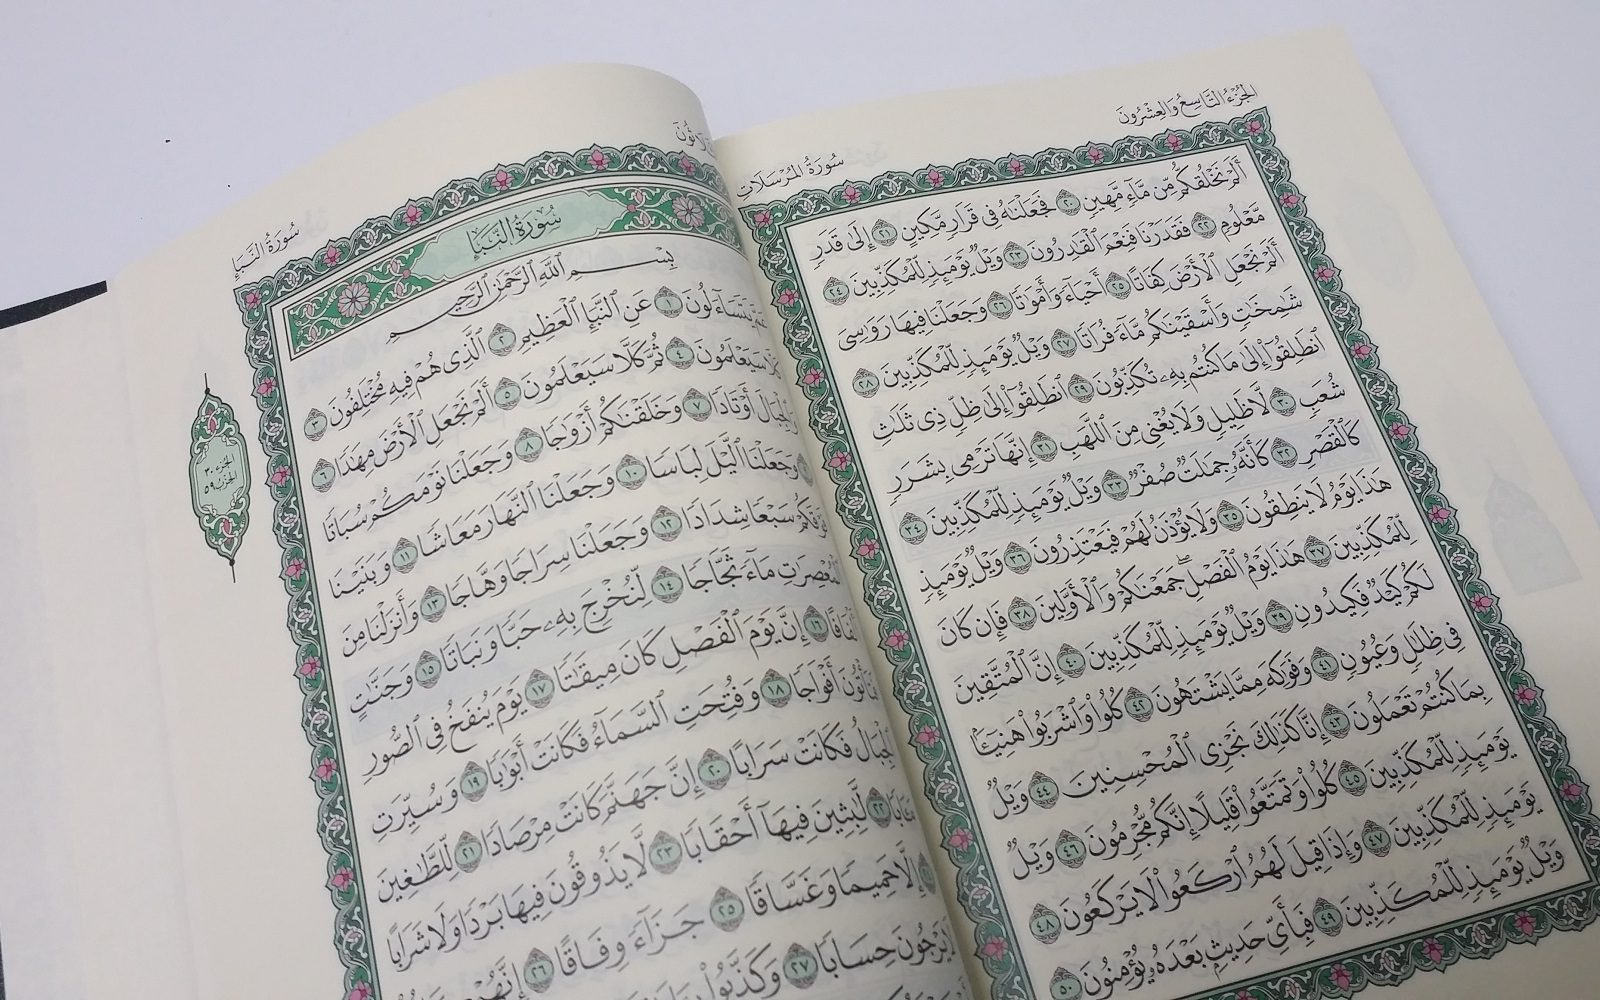 الجزء التاسع والعشرون
سورة المرسلات
أَلَمْ نَخْلُقكُّم مِّن مَّآءٍ مَّهِينٍ ٢٠ فَجَعَلْنَٰهُ فِى قَرَارٍ مَّكِينٍ ٢١ إِلَىٰ قَدَرٍ
مَّعْلُومٍ ٢٢ فَقَدَرْنَا فَنِعْمَ ٱلْقَٰدِرُونَ ٢٣ وَيْلٌ يَوْمَئِذٍ لِّلْمُكَذِّبِينَ ٢٤
أَلَمْ نَجْعَلِ ٱلْأَرْضَ كِفَاتًا ٢٥ أَحْيَآءً وَأَمْوَٰتًا ٢٦ وَجَعَلْنَا فِيهَا رَوَٰسِىَ
شَٰمِخَٰتٍ وَأَسْقَيْنَٰكُم مَّآءً فُرَاتًا ٢٧ وَيْلٌ يَوْمَئِذٍ لِّلْمُكَذِّبِينَ ٢٨
ٱنطَلِقُوٓا۟ إِلَىٰ مَا كُنتُم بِهِۦ تُكَذِّبُونَ ٢٩ ٱنطَلِقُوٓا۟ إِلَىٰ ظِلٍّ ذِى ثَلَٰثِ
شُعَبٍ ٣٠ لَّا ظَلِيلٍ وَلَا يُغْنِى مِنَ ٱللَّهَبِ ٣١ إِنَّهَا تَرْمِى بِشَرَرٍ
كَٱلْقَصْرِ ٣٢ كَأَنَّهُۥ جِمَٰلَتٌ صُفْرٌ ٣٣ وَيْلٌ يَوْمَئِذٍ لِّلْمُكَذِّبِينَ ٣٤
هَٰذَا يَوْمُ لَا يَنطِقُونَ ٣٥ وَلَا يُؤْذَنُ لَهُمْ فَيَعْتَذِرُونَ ٣٦ وَيْلٌ يَوْمَئِذٍ
لِّلْمُكَذِّبِينَ ٣٧ هَٰذَا يَوْمُ ٱلْفَصْلِ ۖ جَمَعْنَٰكُمْ وَٱلْأَوَّلِينَ ٣٨ فَإِن كَانَ
لَكُمْ كَيْدٌ فَكِيدُونِ ٣٩ وَيْلٌ يَوْمَئِذٍ لِّلْمُكَذِّبِينَ ٤٠ إِنَّ ٱلْمُتَّقِينَ
فِى ظِلَٰلٍ وَعُيُونٍ ٤١ وَفَوَٰكِهَ مِمَّا يَشْتَهُونَ ٤٢ كُلُوا۟ وَٱشْرَبُوا۟ هَنِيٓـًٔۢا
بِمَا كُنتُمْ تَعْمَلُونَ ٤٣ إِنَّا كَذَٰلِكَ نَجْزِى ٱلْمُحْسِنِينَ ٤٤ وَيْلٌ
يَوْمَئِذٍ لِّلْمُكَذِّبِينَ ٤٥ كُلُوا۟ وَتَمَتَّعُوا۟ قَلِيلًا إِنَّكُم مُّجْرِمُونَ ٤٦ وَيْلٌ
يَوْمَئِذٍ لِّلْمُكَذِّبِينَ ٤٧ وَإِذَا قِيلَ لَهُمُ ٱرْكَعُوا۟ لَا يَرْكَعُونَ ٤٨
وَيْلٌ يَوْمَئِذٍ لِّلْمُكَذِّبِينَ ٤٩ فَبِأَىِّ حَدِيثٍۭ بَعْدَهُۥ يُؤْمِنُونَ ٥٠
سورة النبأ
سُورَةُ النَّبَإِ
بِسْمِ ٱللَّهِ ٱلرَّحْمَٰنِ ٱلرَّحِيمِ
عَمَّ يَتَسَآءَلُونَ ١ عَنِ ٱلنَّبَإِ ٱلْعَظِيمِ ٢ ٱلَّذِى هُمْ فِيهِ مُخْتَلِفُونَ ٣
كَلَّا سَيَعْلَمُونَ ٤ ثُمَّ كَلَّا سَيَعْلَمُونَ ٥ أَلَمْ نَجْعَلِ ٱلْأَرْضَ مِهَٰدًا ٦
وَٱلْجِبَالَ أَوْتَادًا ٧ وَخَلَقْنَٰكُمْ أَزْوَٰجًا ٨ وَجَعَلْنَا نَوْمَكُمْ سُبَاتًا
وَجَعَلْنَا ٱلَّيْلَ لِبَاسًا ١٠ وَجَعَلْنَا ٱلنَّهَارَ مَعَاشًا ١١ وَبَنَيْنَا
فَوْقَكُمْ سَبْعًا شِدَادًا ١٢ وَجَعَلْنَا سِرَاجًا وَهَّاجًا ١٣ وَأَنزَلْنَا مِنَ
ٱلْمُعْصِرَٰتِ مَآءً ثَجَّاجًا ١٤ لِّنُخْرِجَ بِهِۦ حَبًّا وَنَبَاتًا ١٥ وَجَنَّٰتٍ
أَلْفَافًا ١٦ إِنَّ يَوْمَ ٱلْفَصْلِ كَانَ مِيقَٰتًا ١٧ يَوْمَ يُنفَخُ فِى ٱلصُّورِ
فَتَأْتُونَ أَفْوَاجًا ١٨ وَفُتِحَتِ ٱلسَّمَآءُ فَكَانَتْ أَبْوَٰبًا ١٩ وَسُيِّرَتِ
ٱلْجِبَالُ فَكَانَتْ سَرَابًا ٢٠ إِنَّ جَهَنَّمَ كَانَتْ مِرْصَادًا ٢١ لِّلطَّٰغِينَ
٢٢ لَّٰبِثِينَ فِيهَآ أَحْقَابًا ٢٣ لَّا يَذُوقُونَ فِيهَا بَرْدًا وَلَا شَرَابًا
إِلَّا حَمِيمًا وَغَسَّاقًا ٢٥ جَزَآءً وِفَاقًا ٢٦ إِنَّهُمْ
يَرْجُونَ حِسَابًا ٢٧ وَكَذَّبُوا۟
الجزء ٣٠
الحزب ٥٩